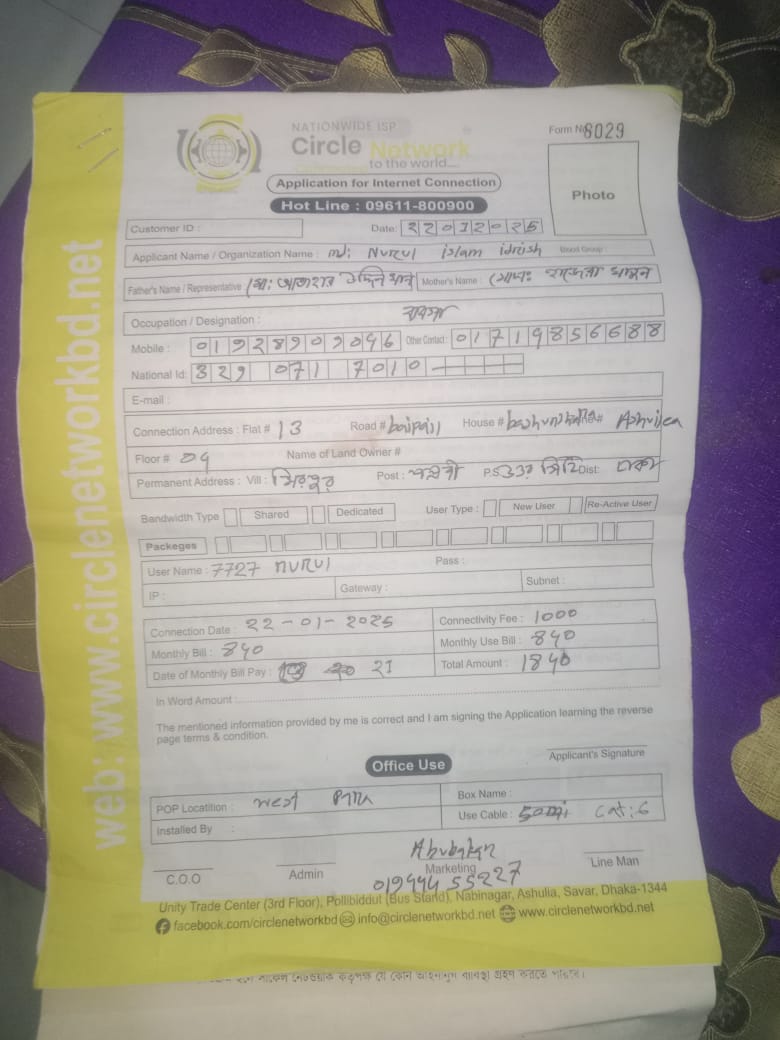 NATIONWIDE ISP
Circle Network
to the world....
Form No 8029
Application for Internet Connection
Photo
Hot Line : 09611-800900
Customer ID : Date: 22012025
Applicant Name / Organization Name : md: Nurul islam idrish Blood Group :
Father's Name / Representative Mother's Name : মোসাঃ
Occupation / Designation : ব্যবসা
Mobile : 01928909096 Other Contact : 01719856688
National Id: 329 071 7010
E-mail :
Connection Address : Flat # 13 Road # baipail House # Ashulia
Floor # 04 Name of Land Owner #
Permanent Address : Vill : মিরপুর Post : পল্লবী P.S: Dist: ঢাকা
Bandwidth Type Shared Dedicated User Type : New User Re-Active User
Packeges
User Name : 7727 nurul Pass :
IP : Gateway : Subnet :
Connection Date : 22-01-2025 Connectivity Fee : 1000
Monthly Bill : 840 Monthly Use Bill : 840
Date of Monthly Bill Pay : 21 Total Amount : 1840
In Word Amount :
The mentioned information provided by me is correct and I am signing the Application learning the reverse
page terms & condition.
Applicant's Signature
Office Use
POP Locatition : West Box Name :
Installed By : Use Cable : Cat:6
Abubakar
C.O.O Admin Marketing Line Man
01944455227
Unity Trade Center (3rd Floor), Pollibiddut (Bus Stand), Nabinagar, Ashulia, Savar, Dhaka-1344
facebook.com/circlenetworkbd info@circlenetworkbd.net www.circlenetworkbd.net
web: www.circlenetworkbd.net